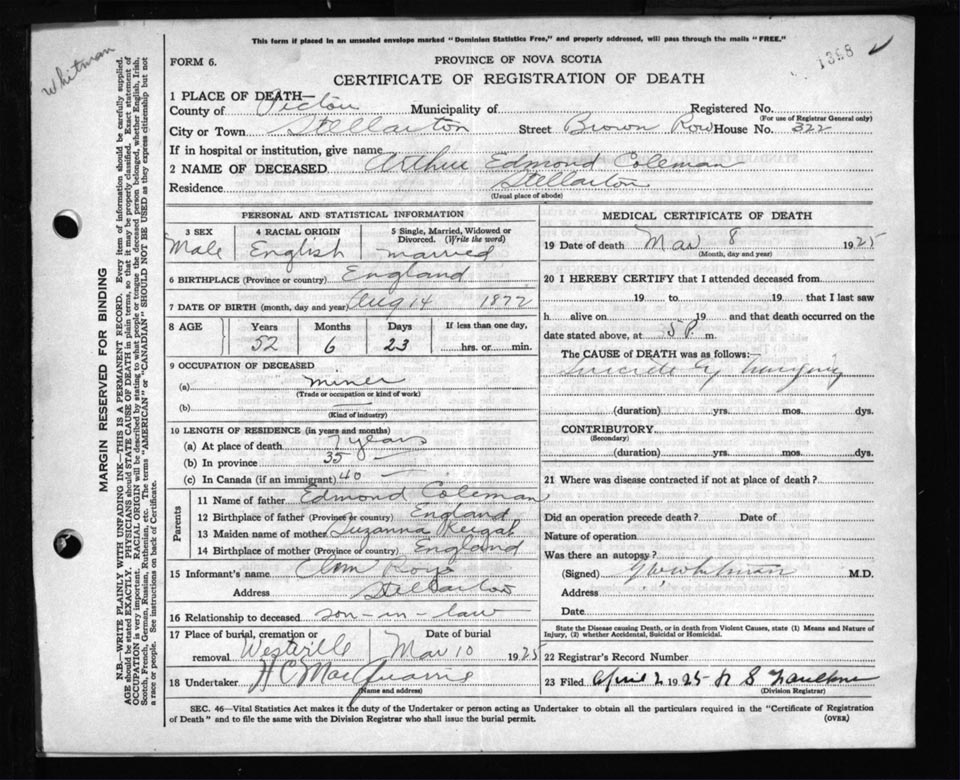 Whitman
This form if placed in an unsealed envelope marked "Dominion Statistics Free," and properly addressed, will pass through the mails "FREE."
1398
FORM 6.
PROVINCE OF NOVA SCOTIA
CERTIFICATE OF REGISTRATION OF DEATH
1 PLACE OF DEATH—
County of Pictou Municipality of Registered No.
(For use of Registrar General only)
City or Town Stellarton Street Brown Row House No. 322
If in hospital or institution, give name
2 NAME OF DECEASED Arthur Edmond Coleman
Residence Stellarton
(Usual place of abode)
PERSONAL AND STATISTICAL INFORMATION
3 SEX 4 RACIAL ORIGIN 5 Single, Married, Widowed or
Divorced. (Write the word)
Male English married
6 BIRTHPLACE (Province or country) England
7 DATE OF BIRTH (month, day and year) Aug 14 1872
8 AGE Years Months Days If less than one day,
52 6 23 hrs. or min.
9 OCCUPATION OF DECEASED
(a) miner
(Trade or occupation or kind of work)
(b)
(Kind of industry)
10 LENGTH OF RESIDENCE (in years and months)
(a) At place of death 7 years
(b) In province 35 —
(c) In Canada (if an immigrant) 40 —
Parents
11 Name of father Edmond Coleman
12 Birthplace of father (Province or country) England
13 Maiden name of mother Suzanna
14 Birthplace of mother (Province or country) England
15 Informant's name
Address Stellarton
16 Relationship to deceased son-in-law
17 Place of burial, cremation or Date of burial
removal Westville Mar 10 1925
18 Undertaker H C MacQuarrie
(Name and address)
MEDICAL CERTIFICATE OF DEATH
19 Date of death Mar 8 1925
(Month, day and year)
20 I HEREBY CERTIFY that I attended deceased from
19 to 19 that I last saw
h alive on 19 and that death occurred on the
date stated above, at 5 P. m.
The CAUSE of DEATH was as follows:
Suicide by hanging
(duration) yrs. mos. dys.
CONTRIBUTORY
(Secondary)
(duration) yrs. mos. dys.
21 Where was disease contracted if not at place of death?
Did an operation precede death? Date of
Nature of operation
Was there an autopsy?
(Signed) Whitman M.D.
Address
Date
State the Disease causing Death, or in death from Violent Causes, state (1) Means and Nature of
Injury, (2) whether Accidental, Suicidal or Homicidal.
22 Registrar's Record Number
23 Filed April 2 1925 S Faulkner
(Division Registrar)
SEC. 46—Vital Statistics Act makes it the duty of the Undertaker or person acting as Undertaker to obtain all the particulars required in the "Certificate of Registration
of Death" and to file the same with the Division Registrar who shall issue the burial permit.
(OVER)
MARGIN RESERVED FOR BINDING
N.B.—WRITE PLAINLY WITH UNFADING INK—THIS IS A PERMANENT RECORD. Every item of information should be carefully supplied.
AGE should be stated EXACTLY. PHYSICIANS should STATE CAUSE OF DEATH in plain terms, so that it may be properly classified. Exact statement of
OCCUPATION is very important. RACIAL ORIGIN will be described by stating to what people or tongue the deceased person belonged, whether English, Irish,
Scotch, French, German, Russian, Ruthenian, etc. The terms "AMERICAN" or "CANADIAN" SHOULD NOT BE USED as they express citizenship but not
a race or people. See instructions on back of Certificate.